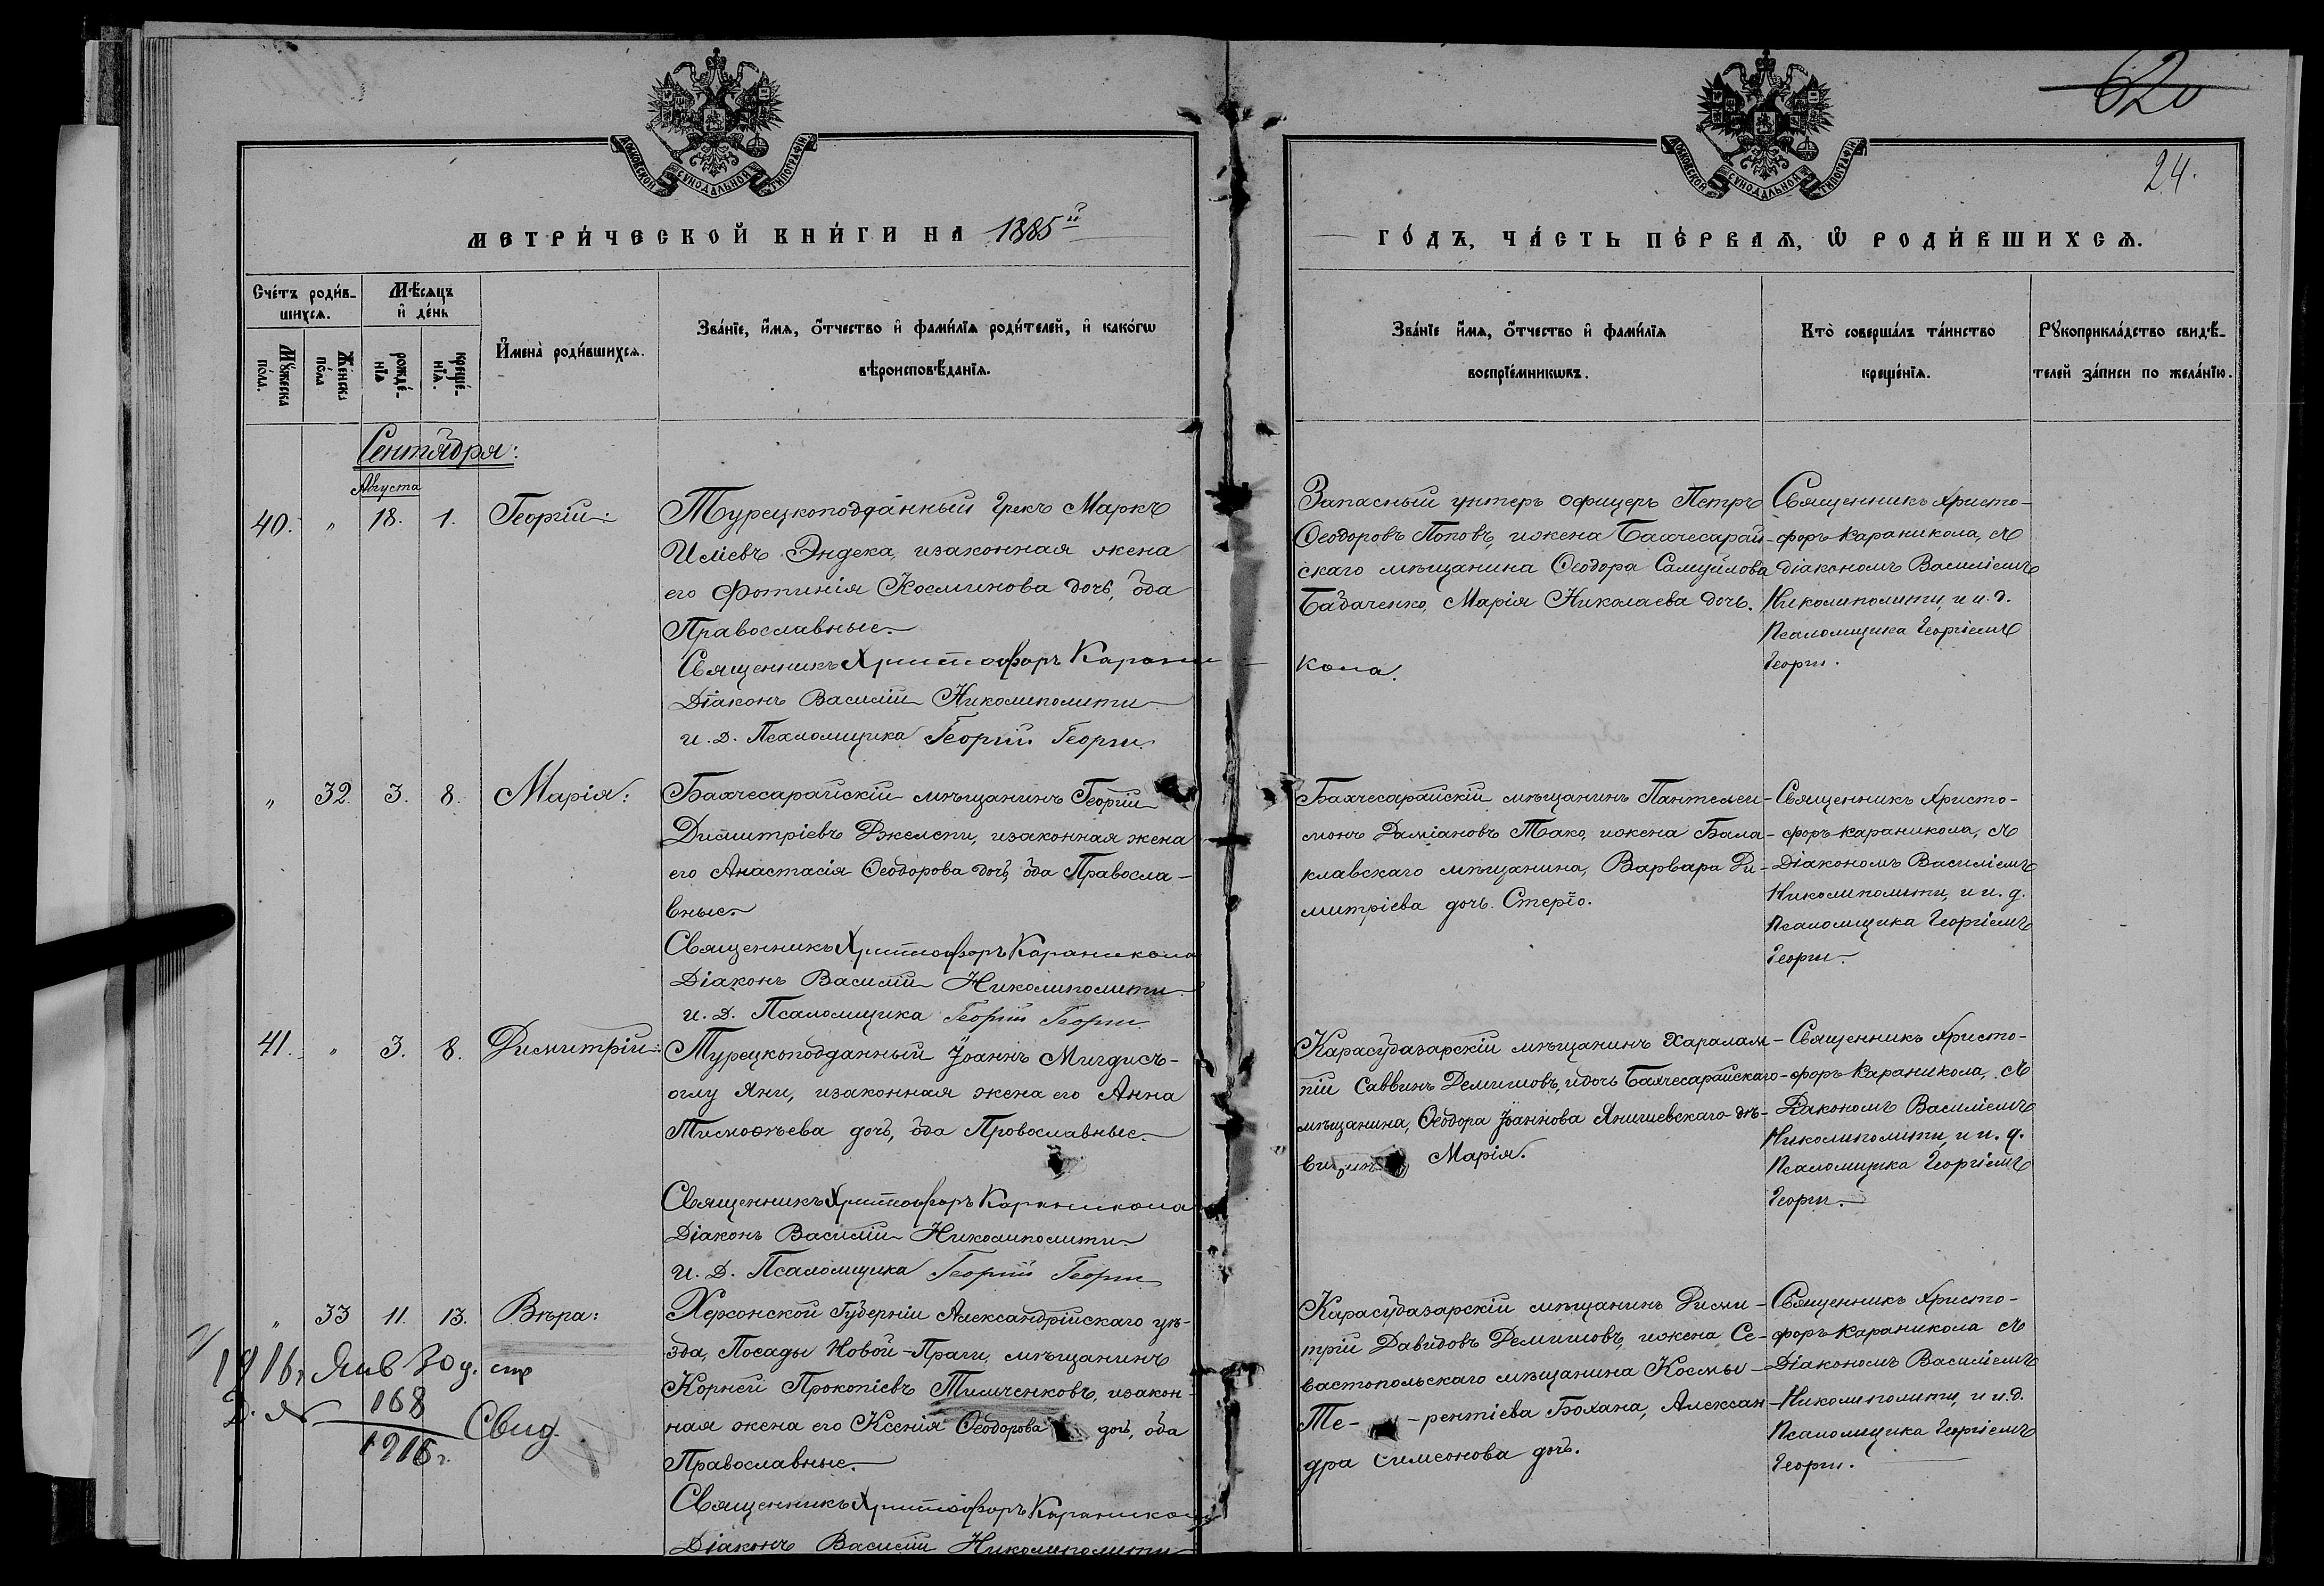 620
24.
МОСКОВСКОЙ СѴНОДАЛЬНОЙ ТИПОГРАФІИ
МОСКОВСКОЙ СѴНОДАЛЬНОЙ ТИПОГРАФІИ
МЕТРИ́ЧЕСКОЙ КНИ́ГИ НА 1885й
ГО́ДЪ, ЧА́СТЬ ПЕ́РВАѦ, Ѿ РОДИ́ВШИХСѦ.
Сче́тъ роди́в-
шихсѧ.
Мꙋ́жеска
по́ла.
Же́нска
по́ла
Мѣ́сѧцъ
и҆ де́нь
рожде́-
нїѧ
креще́-
нїѧ.
И҆мена̀ роди́вшихсѧ.
Зва́нїе, и҆́мѧ, ѻ҆́тчество и҆ фами́лїѧ роди́телей, и҆ како́гѡ
вѣроисповѣ́данїѧ.
Зва́нїе и҆́мѧ, ѻ҆́тчество и҆ фами́лїѧ
воспрїе́мникѡвъ.
Кто̀ соверша́лъ та́инство
креще́нїѧ.
Рꙋкоприкла́дство свидѣ́-
телей за́писи по жела́нїю.
Сентября:
Августа
40. " 18. 1. Георгій:
Турецкоподданный Грекъ Маркъ
Иліевъ Эндека, изаконная жена
его Фотинія Косминова дочь, оба
Православные.
Священникъ Христофоръ Карани-
Діаконъ Василій Николиполити
и. д. Псаломщика Георгій Георги.
Запасный унтеръ офицеръ Петръ
Ѳеодоровъ Поповъ, ижена Бахчесарай-
скаго мѣщанина Ѳеодора Самуйлова
Бабаченко, Марія Николаева дочь.
кола.
Священникъ Христо-
форъ Караникола, съ
діакономъ Василіемъ
Николиполити, и и. д.
Псаломщика Георгіемъ
Георги.
" 32. 3. 8. Марія:
Бахчесарайскій мѣщанинъ Георгій
Димитріевъ Джелепи, изаконная жена
его Анастасія Ѳеодорова дочь, оба Правосла-
вные.
Священникъ Христофоръ Караникола
Діаконъ Василій Николиполити
и. д. Псаломщика Георгій Георги.
Бахчесарайскій мѣщанинъ Пантелей-
монъ Даміановъ Тако, ижена Бала-
клавскаго мѣщанина, Варвара Ди-
митріева дочь. Стеріо.
Священникъ Христо-
форъ Караникола, съ
Діакономъ Василіемъ
Николиполити, и и. д.
Псаломщика Георгіемъ
Георги.
41. " 3. 8. Димитрій:
Турецкоподданный Іоаннъ Мигдисъ-
оглу Яни, изаконная жена его Анна
Тимоѳѣева дочь, оба Провославные.
Священникъ Христофоръ Караникола
Діаконъ Василій Николиполити
и. д. Псаломщика Георгій Георги
Карасубазарскій мѣщанинъ Харалам-
пій Саввинъ Демишовъ, идочь Бахчесарайскаго
мѣщанина, Ѳеодора Іоаннова Янишевскаго дѣ-
Марія.
Священникъ Христо-
форъ Караникола, съ
Діакономъ Василіемъ
Николиполити, и и. д.
Псаломщика Георгіемъ
Георги.
" 33 11. 13. Вѣра:
1916, Янв 30 д.
168
1916 г.
Свид.
Херсонской Губерніи Александрійскаго уѣ-
зда, Посады Новой-Праги, мѣщанинъ
Корней Прокопіевъ Тимченковъ, изакон-
ная жена его Ксенія Ѳеодорова дочь, оба
Православные.
Священникъ Христофоръ Караникола
Діаконъ Василій Николиполити
Карасубазарскій мѣщанинъ Дими-
трій Давидовъ Демишовъ, ижена Се-
вастопольскаго мѣщанина Космы
Те- -рентіева Бохана, Алексан-
дра Симеонова дочь.
Священникъ Христо-
форъ Караникола съ
Діакономъ Василіемъ
Николиполити, и и. д.
Псаломщика Георгіемъ
Георги.